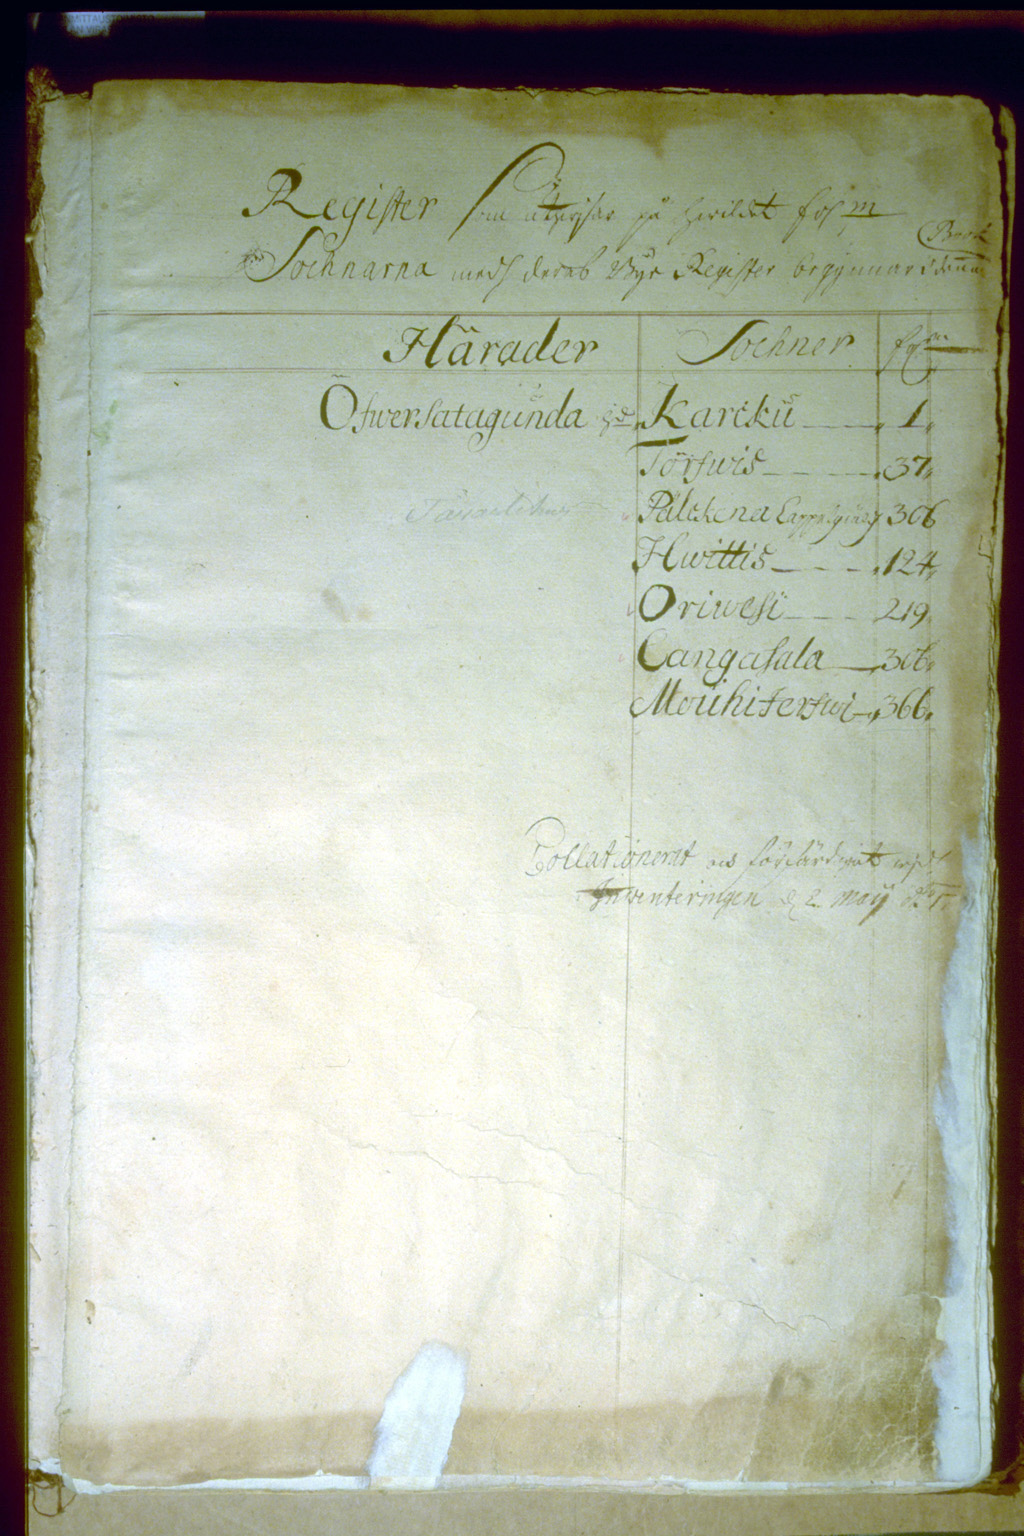 Register som utwijsar på hwilcket fol m
Sochnarna medh deras Bye Register begynnar i denna Book
Härader Sochner fol
Öfwersatagunda hd Karckü 1
Törfwis 37
Pälckena Cappelgiäld 306
Hwittis 124
Oriwesi 219
Cangasala 306
Mouhiterfwi 366
Collationerat och förfärdigat widh
Inwenteringen d 2 maij